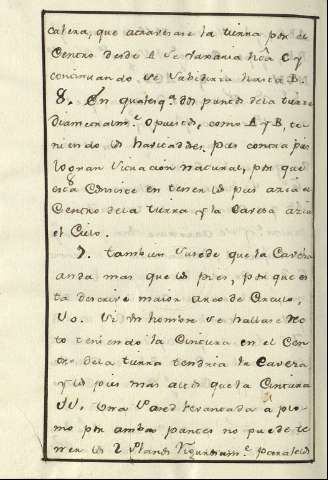 calera, que atravesase la tierra por el
Centro desde A se vaxaria hta C y
continuando se subiria hasta B.
8. En qualesqa dos puntos dela tierra
Diametralmte opuestos, como A y B, te
niendo los havitadores pies contra pies
logran situacion natural, por que
esta Consiste en tener los pies azia el
Centro dela tierra y la Cavesa azia
el Cielo.
9. tambien susede que la Cavesa
anda mas que los pies, por que es
ta describe maior arco de Circulo.
10. Si un hombre se hallase
to teniendo la Cintura en el Cen
tro dela tierra tendria la Cavesa
y los pies mas altos que la Cintura
11. Una Pared levantada a plo
mo por ambas partes no puede te
ner los 2 Planos Rigurosamte paralelos